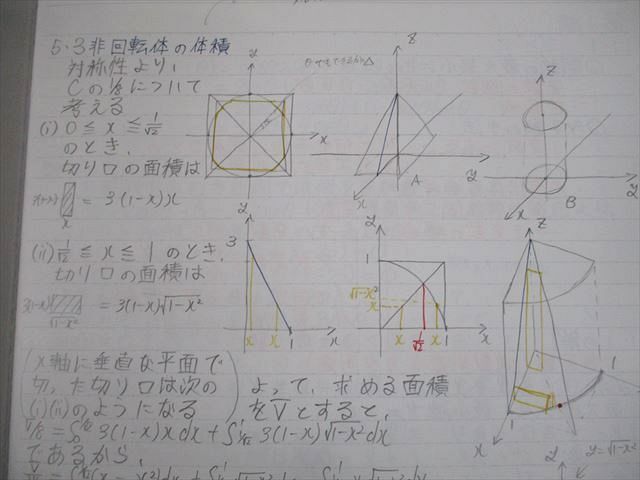 5・3非回転体の体積
対称性より、
Cの1/8について
考える
(i) 0≦x≦1/√2
のとき、
切り口の面積は
3(1-x) x = 3(1-x)x
(ii) 1/√2≦x≦1のとき、
切り口の面積は
3(1-x) √1-x² = 3(1-x)√1-x²
x軸に垂直な平面で
切った切り口は次の
(i)(ii)のようになる
よって、求める面積
をVとすると、
V/8 = ∫₀^1/√2 3(1-x)x dx + ∫1/√2^1 3(1-x)√1-x² dx
であるから、
y
x
z
y
x
A
z
y
x
B
y
3
x
x
1
y
1
√1-x²
x
x
1/√2
x
1
x
z
1
1
x
y
y=√1-x²